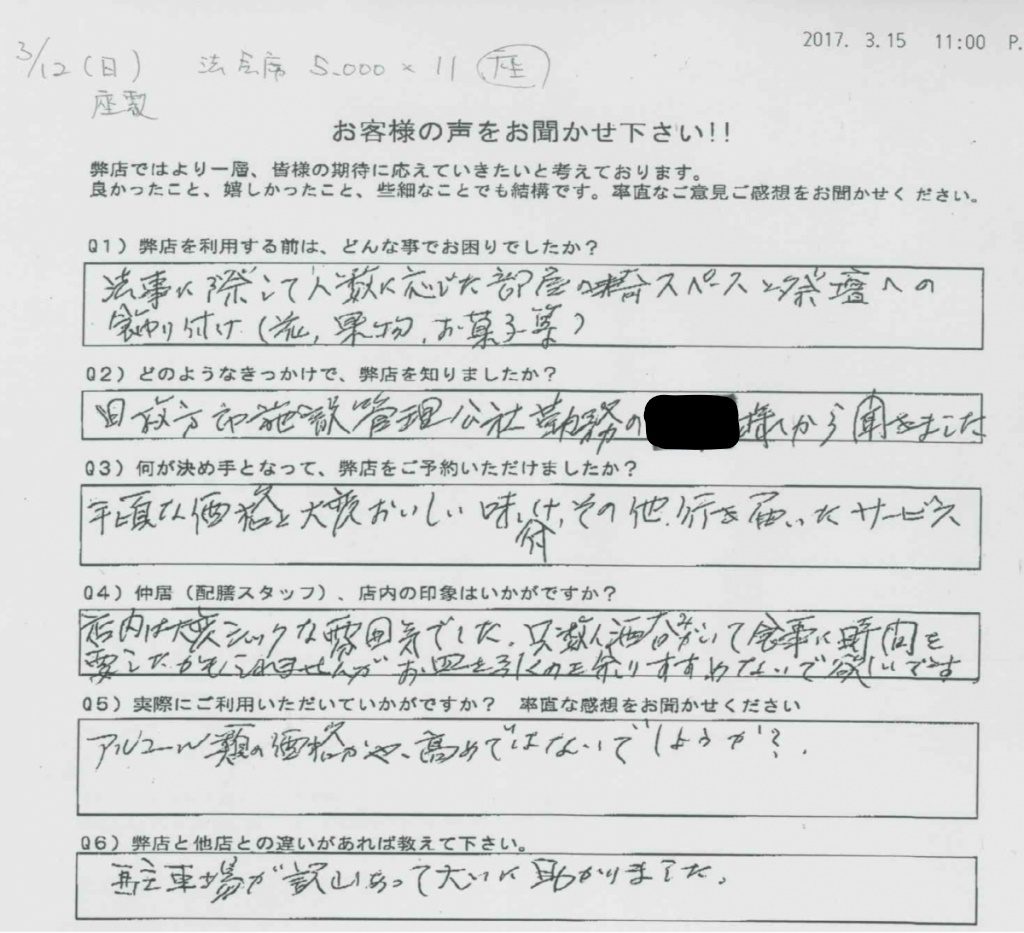 2017. 3.15 11:00 P.
3/12(日) 法会席 5.000×11 座
座敷
お客様の声をお聞かせ下さい!!
弊店ではより一層、皆様の期待に応えていきたいと考えております。
良かったこと、嬉しかったこと、些細なことでも結構です。率直なご意見ご感想をお聞かせください。
Q1)弊店を利用する前は、どんな事でお困りでしたか?
法事に際して人数に応じた部屋の スペースと祭壇への
飾り付け(花,果物,お菓子等)
Q2)どのようなきっかけで、弊店を知りましたか?
旧枚方市施設管理公社勤務の 様から聞きました
Q3)何が決め手となって、弊店をご予約いただけましたか?
手頃な価格と大変おいしい味付け,その他,行き届いたサービス
Q4)仲居(配膳スタッフ)、店内の印象はいかがですか?
店内は大変シックな雰囲気でした.只数人酒 いて食事に時間を
要したかもしれませんがお皿を引くのを余りすすめないで欲しいです
Q5)実際にご利用いただいていかがですか? 率直な感想をお聞かせください
アルコール類の価格がやゝ高めではないでしょうか?.
Q6)弊店と他店との違いがあれば教えて下さい。
駐車場が沢山あって大いに助かりました.